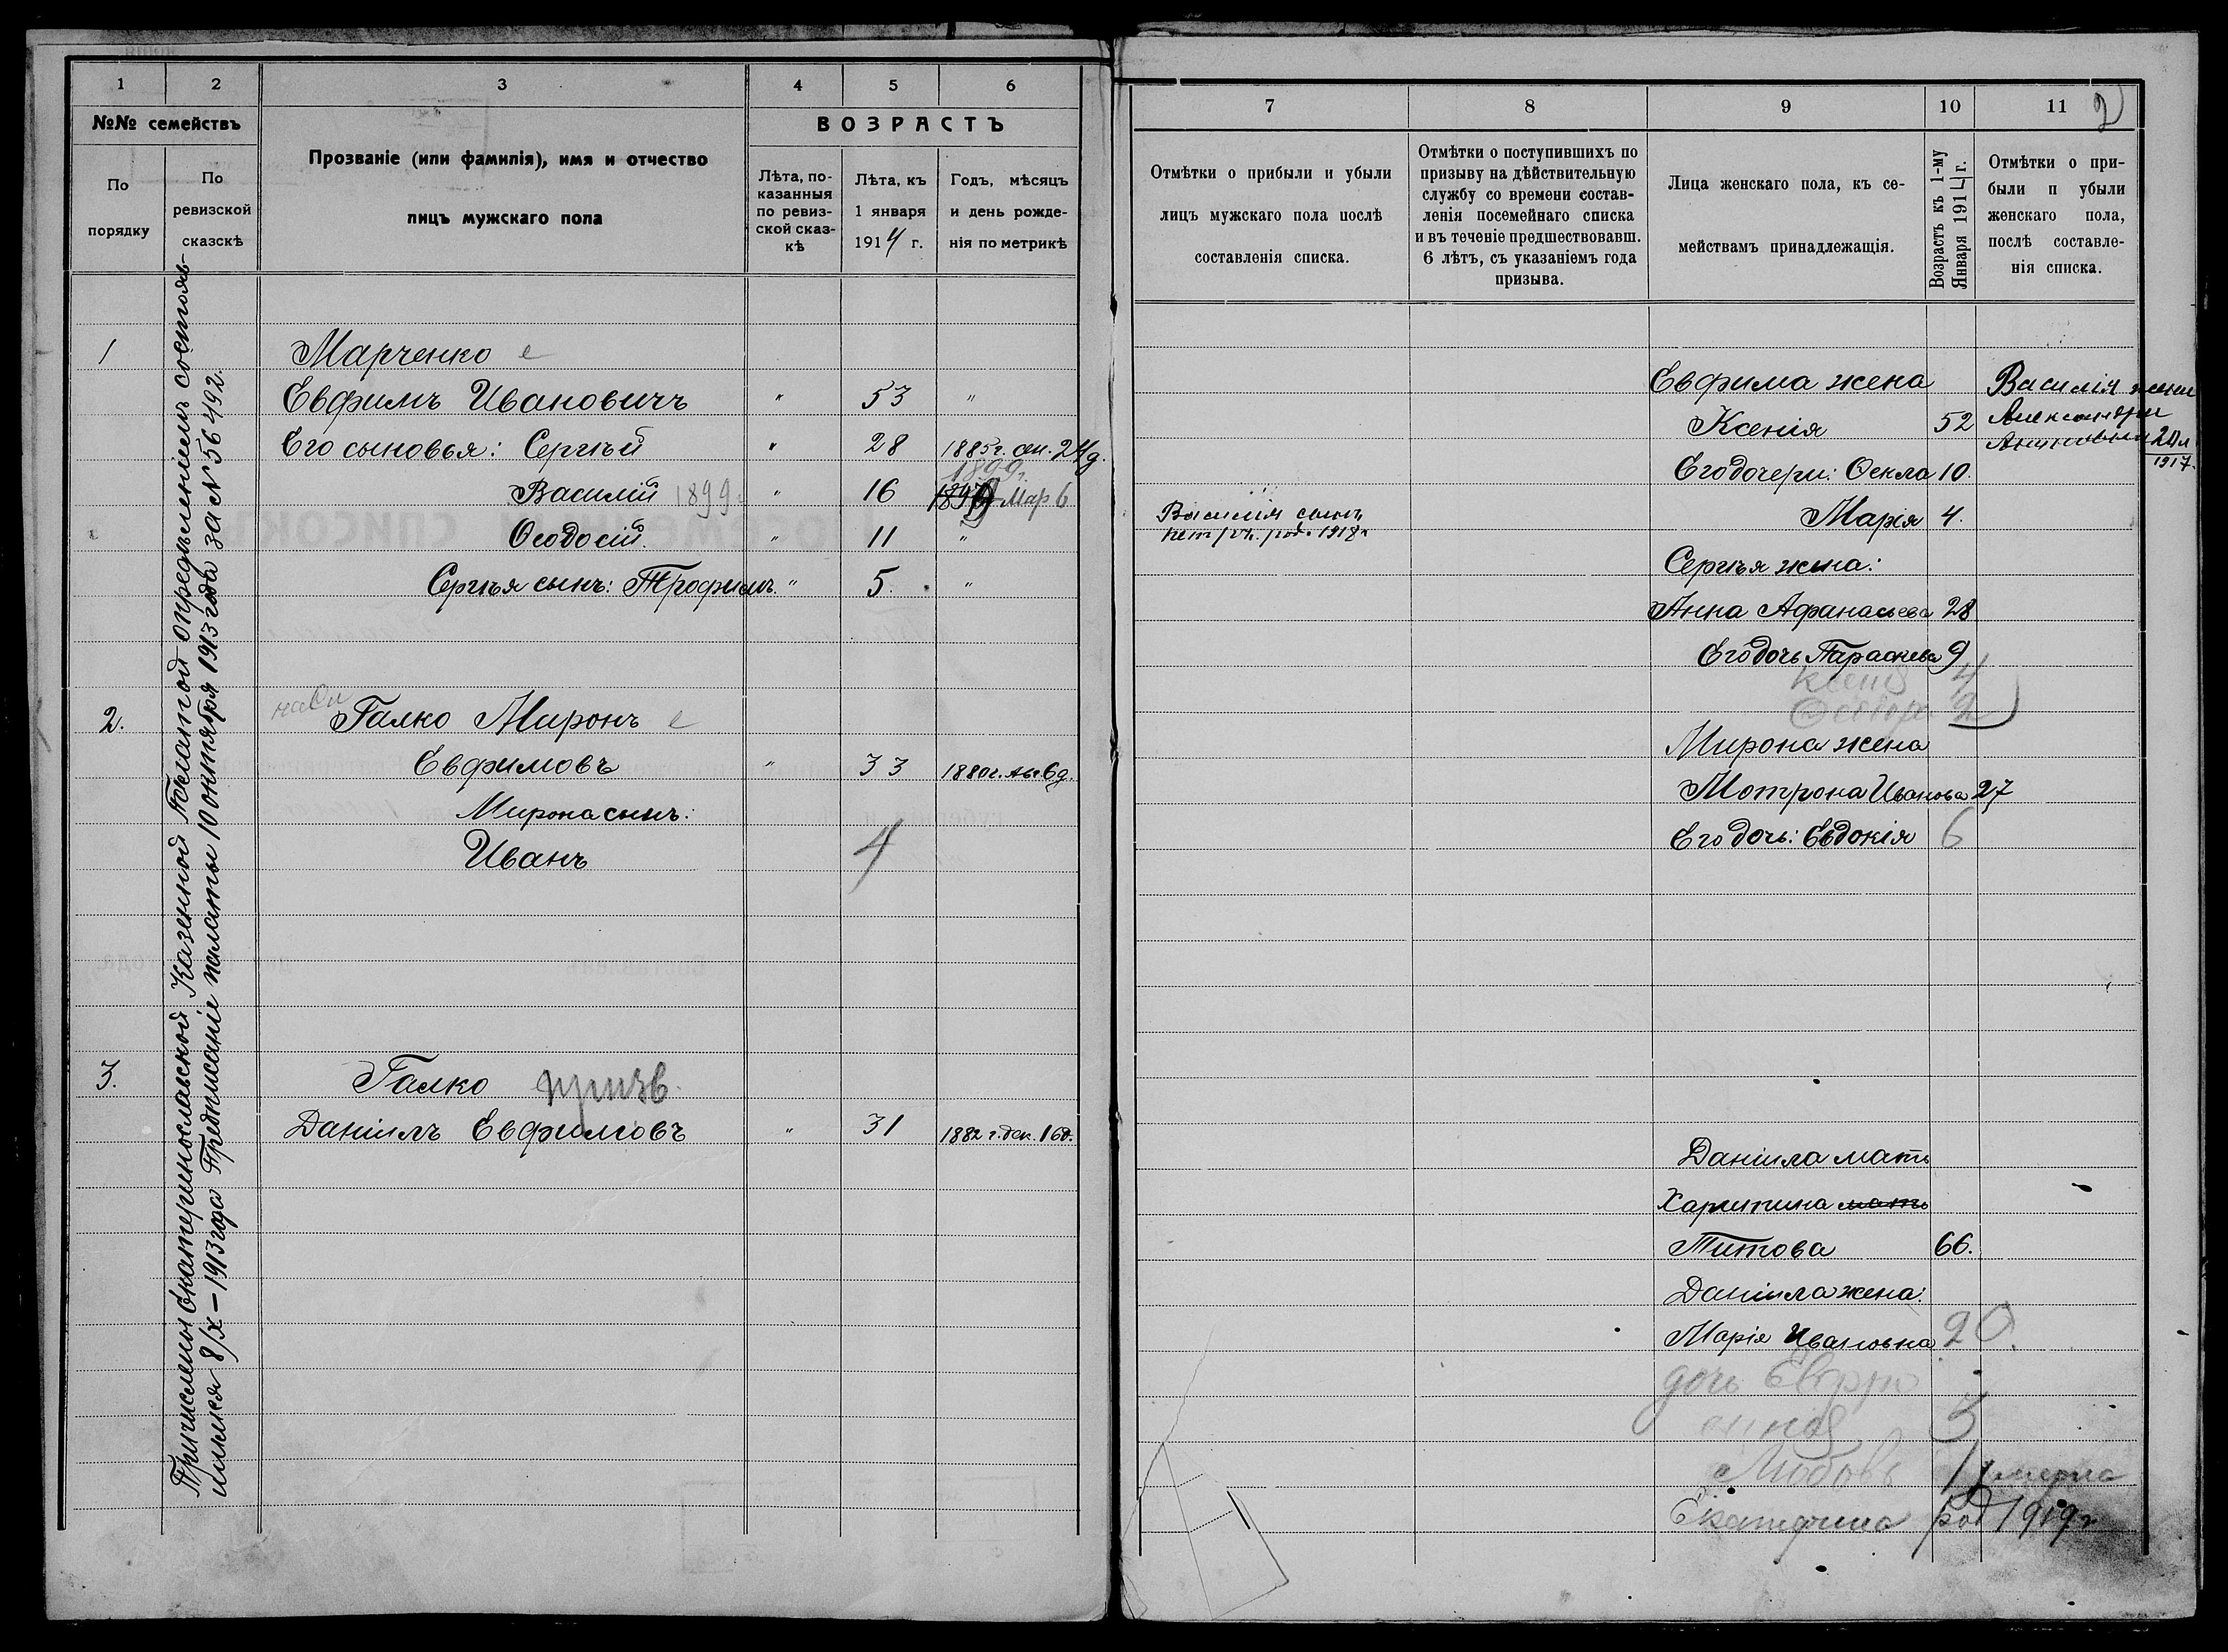 1 2 3 4 5 6
№№ семействъ
По порядку
По ревизской сказскѣ
Прозваніе (или фамилія), имя и отчество
лицъ мужскаго пола
ВОЗРАСТЪ
Лѣта, по-
казанныя
по ревиз-
ской сказ-
кѣ
Лѣта, къ
1 января
1914 г.
Годъ, мѣсяцъ
и день рожде-
нія по метрикѣ
Причислены Екатеринославской Казенной Палатой опредѣленіемъ состояв-
шимся 8/X – 1913 года Предписаніе палаты 10 октября 1913 года за № 56492.
1 Марченко
Евфимъ Ивановичъ " 53 "
Его сыновья: Сергѣй " 28 1885 г. сен. 24 д.
1899 г.
Василій 1899 " 16 Мар 6
Ѳеодосій " 11 "
Сергѣя сынъ: Трофимъ. " 5. "
2. Галко Миронъ
Евфимовъ " 33 1880 г. Ав 6 д.
Мирона сынъ:
Иванъ 4
3. Галко призв.
Даніилъ Евфимовъ " 31 1882 г. дек. 16 д.
7 8 9 10 11 2
Отмѣтки о прибыли и убыли
лицъ мужскаго пола послѣ
составленія списка.
Отмѣтки о поступившихъ по
призыву на дѣйствительную
службу со времени состав-
ленія посемейнаго списка
и въ теченіе предшествовавш.
6 лѣтъ, съ указаніемъ года
призыва.
Лица женскаго пола, къ се-
мействамъ принадлежащія.
Возрастъ къ 1-му
Января 1914 г.
Отмѣтки о при-
были и убыли
женскаго пола,
послѣ составле-
нія списка.
Евфима жена
Ксенія 52
Василія жена
Александра
24 л
1917.
Его дочери: Ѳекла 10.
Марія 4.
Василія сынъ
Петръ род. 1918 г
Сергѣя жена:
Анна Афанасьева 28
Его дочь Параскева 9
Ксенія 4
2
Мирона жена
Мотрона Иванова 27
Его дочь: Евдокія 6
Даніила мать
Харитина мать
Титова 66.
Даніила жена:
Марія Ивановна 20.
дочь Евфро
синія 3
Любовь 1 умерла
Екатерина род 1919 г